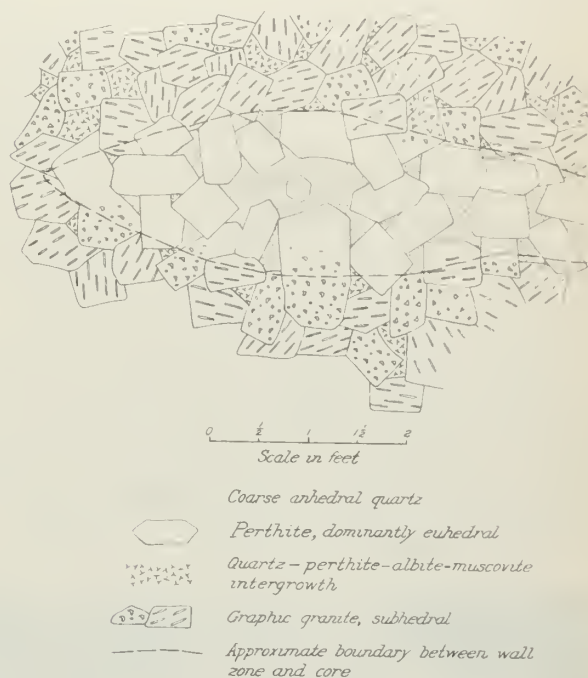 0 ½ 1 1½ 2
Scale in feet
Coarse anhedral quartz
Perthite, dominantly euhedral
Quartz-perthite-albite-muscovite
intergrowth
Graphic granite, subhedral
Approximate boundary between wall
zone and core